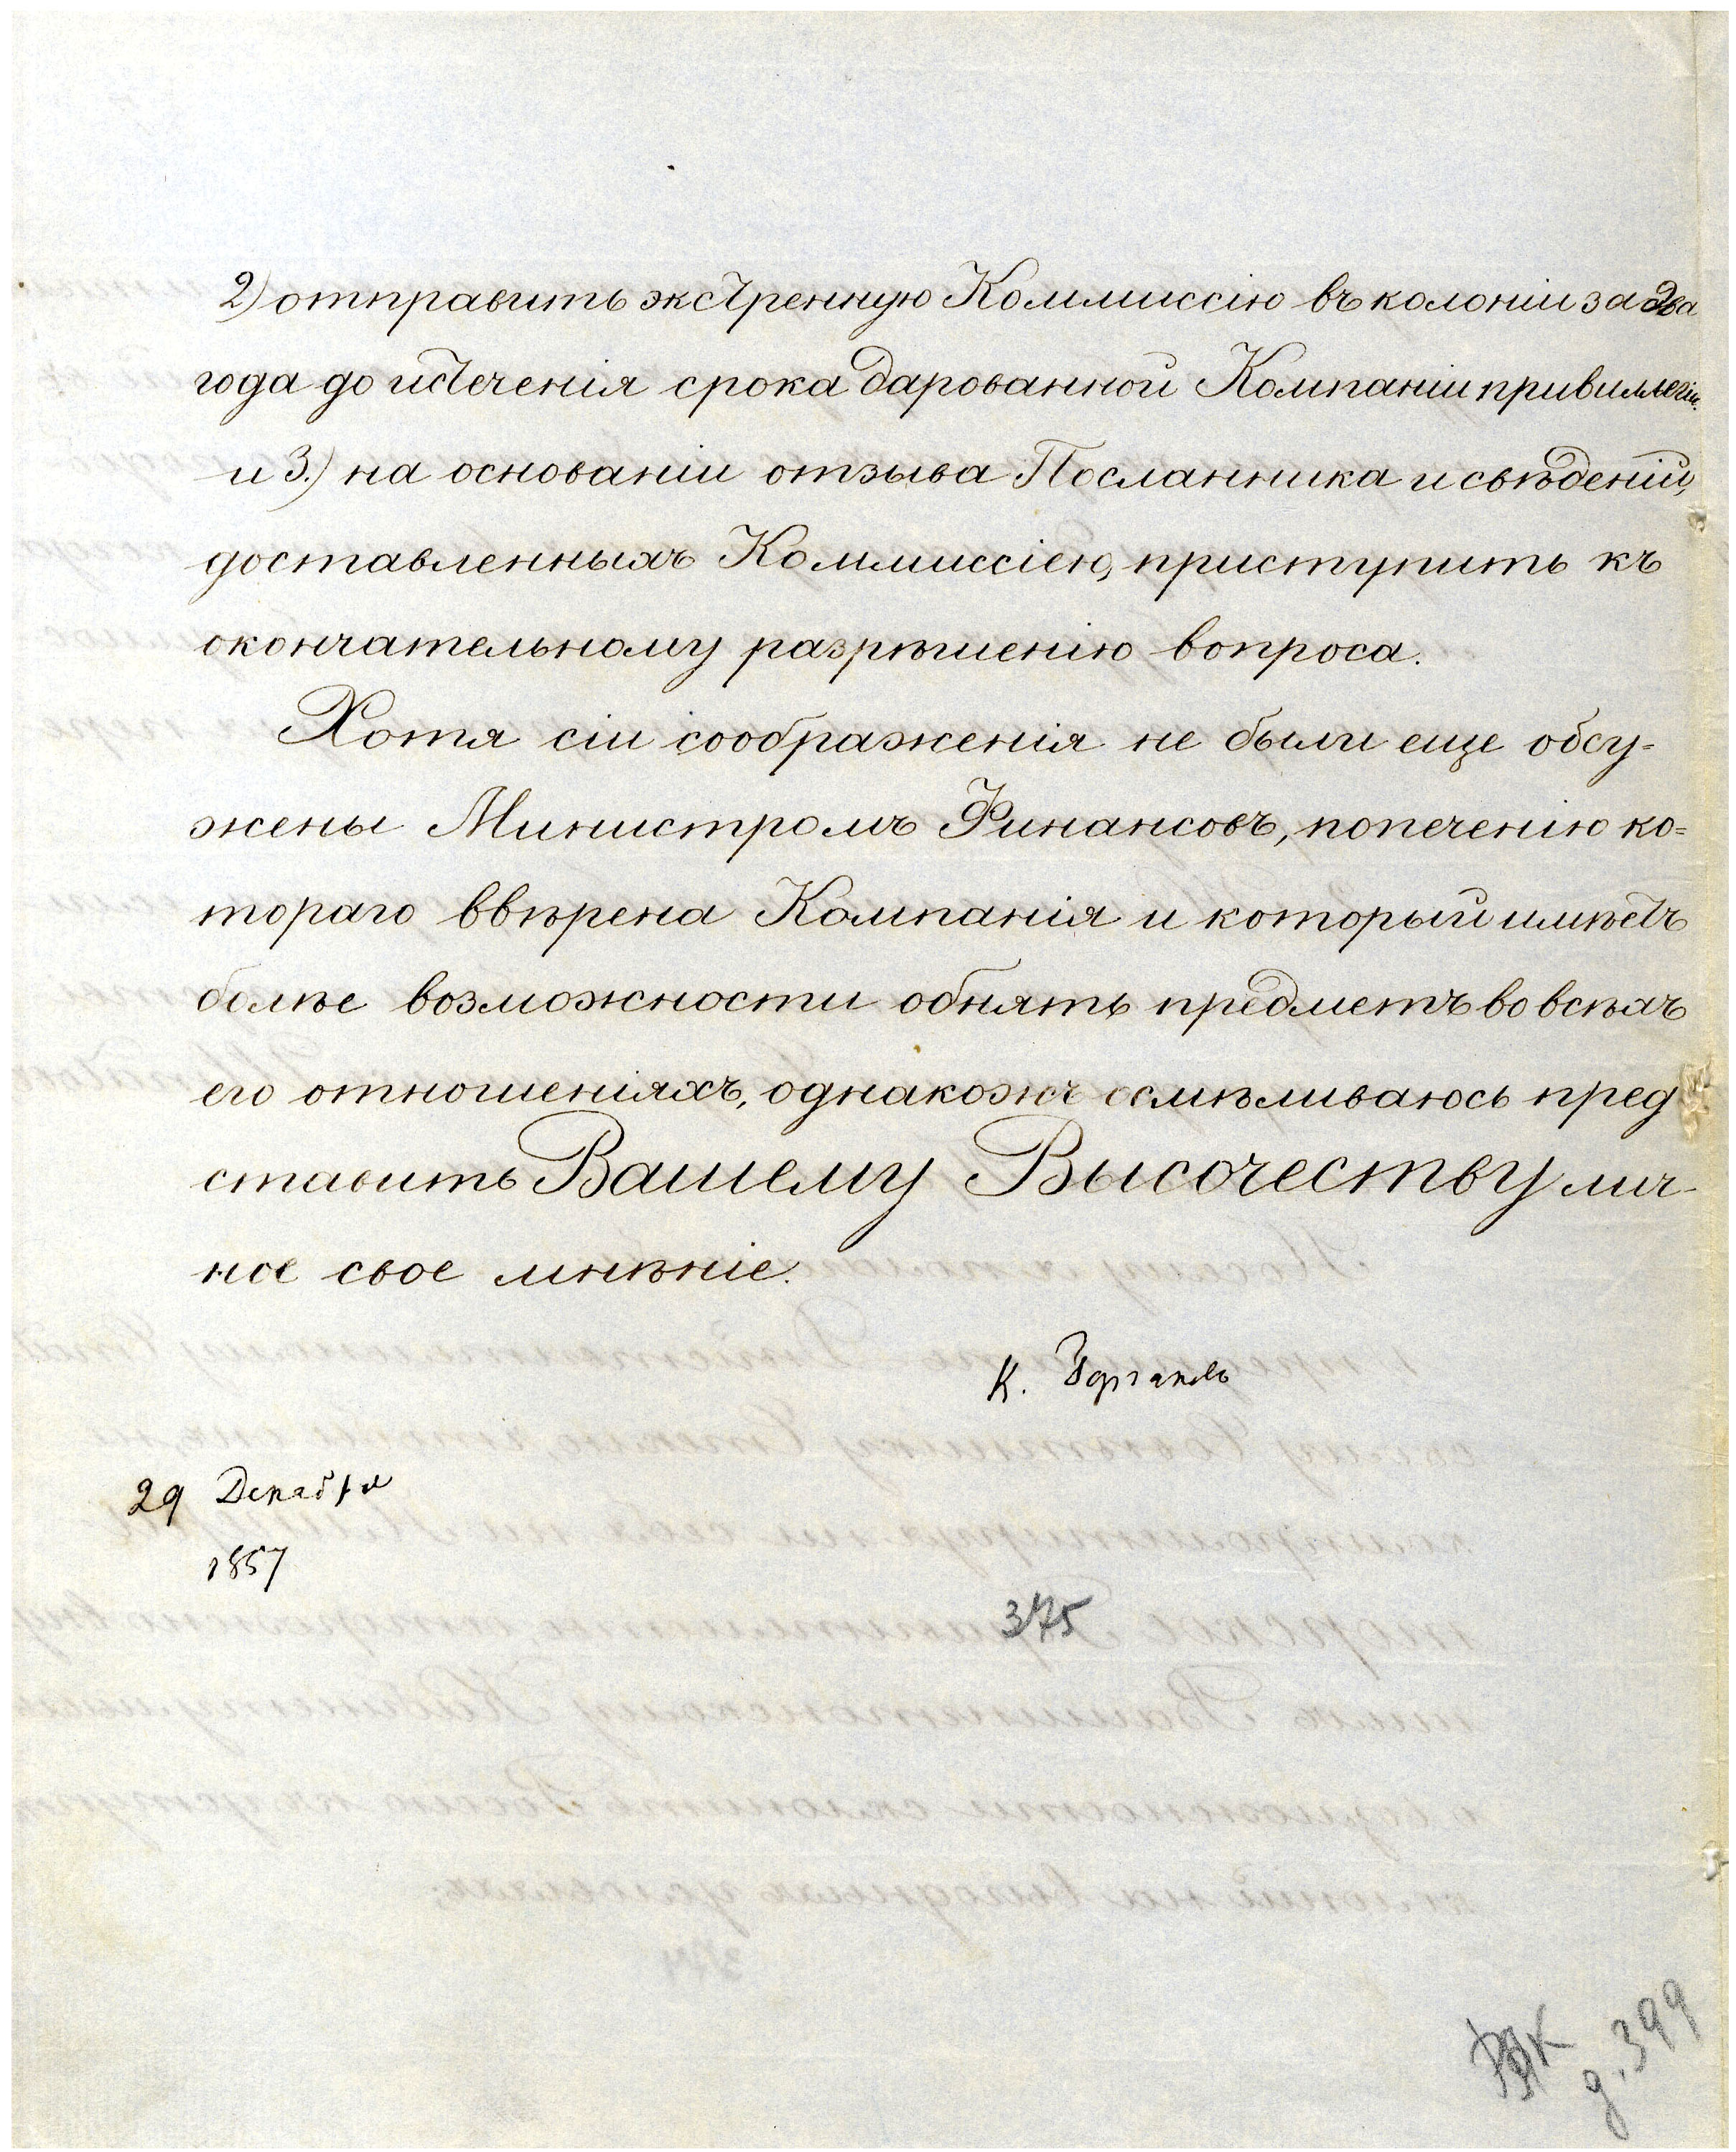 2) отправить экстренную Коммиссію въ колоніи за два
года до истеченія срока дарованной Компаніи привиллегіи.
и 3.) на основаніи отзыва Посланника и свѣденій,
доставленныхъ Коммиссіею, приступить къ
окончательному разрѣшенію вопроса.
Хотя сіи соображенія не были еще обсу=
жены Министромъ Финансовъ, попеченію ко=
тораго ввѣрена Компанія и который имѣетъ
болѣе возможности обнять предметъ во всѣхъ
его отношеніяхъ, однакожъ осмѣливаюсь пред
ставить Вашему Высочеству лич-
ное свое мнѣніе.
К. Горчаковъ
29 Декабря
1857
375
д. 399